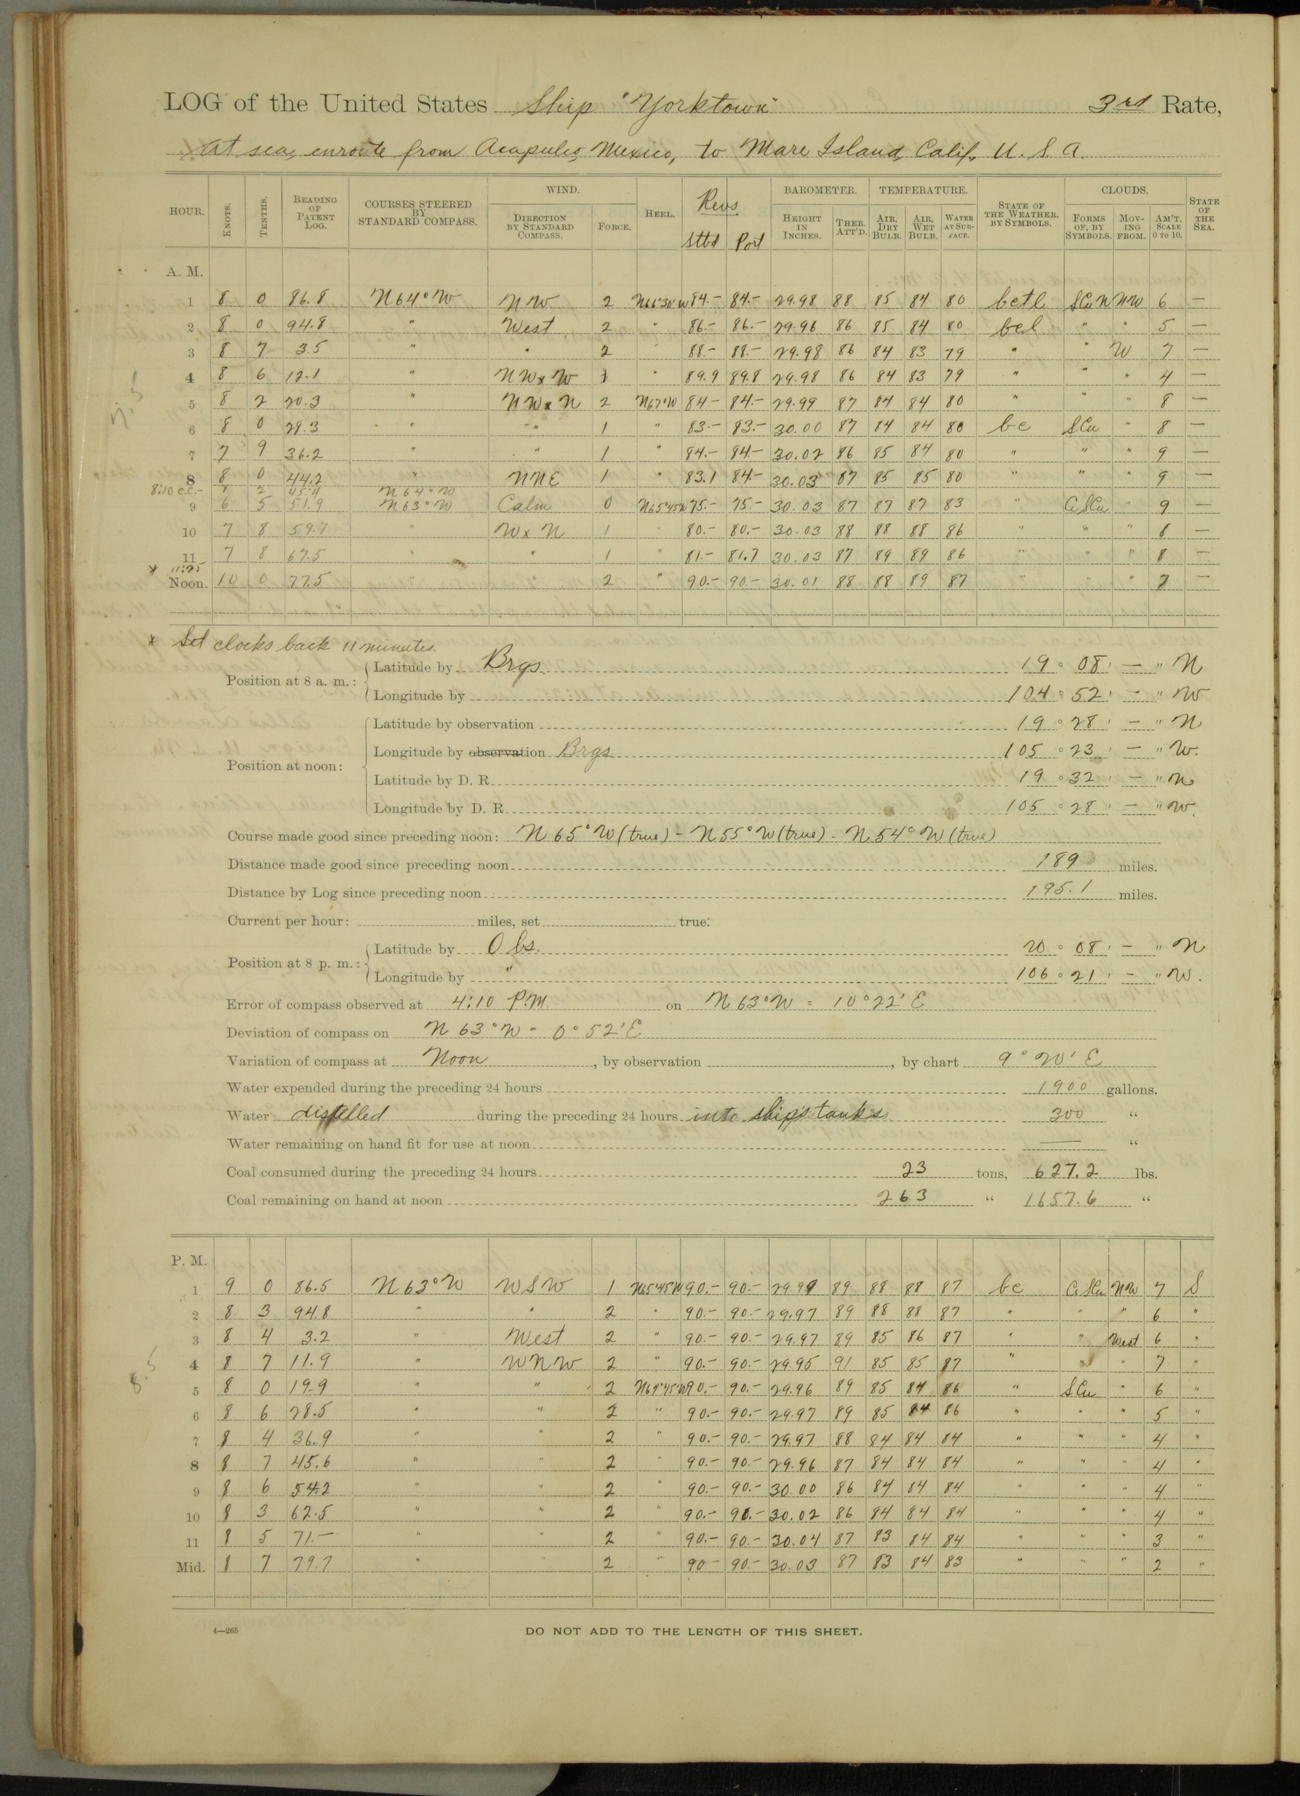 LOG of the United States Ship "Yorktown" 3rd Rate,
At sea, enroute from Acapulco, Mexico, to Mare Island, Calif. U. S. A.
HOUR. KNOTS. TENTHS. READING OF PATENT LOG. COURSES STEERED BY STANDARD COMPASS. WIND. DIRECTION BY STANDARD COMPASS. FORCE. HEEL. Revs Stbd Port BAROMETER. HEIGHT IN INCHES. THER. ATT'D. TEMPERATURE. AIR, DRY BULB. AIR, WET BULB. WATER AT SURFACE. STATE OF THE WEATHER, BY SYMBOLS. CLOUDS. FORMS OF, BY SYMBOLS. MOVING FROM. AM'T. SCALE 0 TO 10. STATE OF THE SEA.
A. M.
1 8 0 86.8 N 64° W NW 2 N66°30'W 84.- 84.- 29.98 88 85 84 80 bctl SCuN NW 6 —
2 8 0 94.8 " West 2 " 86.- 86.- 29.96 86 85 84 80 bcl " " 5 —
3 8 7 3.5 " " 2 88.- 88.- 29.98 86 84 83 79 " " W 7 —
4 8 6 12.1 " NWxW 1 " 89.9 89.8 29.98 86 84 83 79 " " " 4 —
5 8 2 20.3 " NWxN 2 N67°W 84- 84.- 29.99 87 84 84 80 " " " 8 —
6 8 0 28.3 " " 1 " 83.- 83.- 30.00 87 84 84 80 bc SCu " 8 —
7 7 9 36.2 " " 1 " 84.- 84- 30.02 86 85 84 80 " " " 9 —
8 8 0 44.2 " NNE 1 " 83.1 84- 30.03 87 85 85 80 " " " 9 —
8:10 c.c.- 1 2 45.4 N 64° W
9 6 5 51.9 N 63° W Calm 0 N65°45'W 75.- 75.- 30.03 87 87 87 83 " C SCu " 9 —
10 7 8 59.7 " WxN 1 " 80.- 80.- 30.03 88 88 88 86 " " " 8 —
11 7 8 67.5 " " 1 " 81.- 81.7 30.03 87 89 89 86 " " " 8 —
x 11:25
Noon. 10 0 77.5 " " 2 " 90.- 90.- 30.01 88 88 89 87 " " " 7 —
x Set clocks back 11 minutes.
Position at 8 a. m.: Latitude by Brgs. 19 ° 08 ' — " N
Longitude by 104 ° 52 ' — " W
Position at noon: Latitude by observation 19 ° 28 ' — " N
Longitude by observation Brgs 105 ° 23 ' — " W.
Latitude by D. R. 19 ° 32 ' — " N
Longitude by D. R. 105 ° 28 ' — " W.
Course made good since preceding noon: N 65° W (true) - N 55° W (true) - N 54° W (true)
Distance made good since preceding noon 189 miles.
Distance by Log since preceding noon 195.1 miles.
Current per hour: miles, set true:
Position at 8 p. m.: Latitude by Obs. 20 ° 08 ' — " N
Longitude by " 106 ° 21 ' — " W.
Error of compass observed at 4:10 P.M. on N 63° W = 10° 22' E
Deviation of compass on N 63° W - 0° 52' E
Variation of compass at Noon, by observation , by chart 9° 20' E
Water expended during the preceding 24 hours 1900 gallons.
Water distilled during the preceding 24 hours into ship's tanks 300 "
Water remaining on hand fit for use at noon —— "
Coal consumed during the preceding 24 hours 23 tons, 627.2 lbs.
Coal remaining on hand at noon 263 " 1657.6 "
P. M.
1 9 0 86.5 N 63° W WSW 1 N65°45'W 90.- 90.- 29.99 89 88 88 87 bc C SCu NW 7 S
2 8 3 94.8 " " 2 " 90.- 90.- 29.97 89 88 88 87 " " " 6 "
3 8 4 3.2 " West 2 " 90.- 90.- 29.97 89 85 86 87 " " West 6 "
4 8 7 11.9 " WNW 2 " 90.- 90.- 29.95 91 85 85 87 " " " 7 "
8.5
5 8 0 19.9 " " 2 90.- 90.- 29.96 89 85 84 86 " SCu " 6 "
6 8 6 28.5 " " 2 " 90.- 90.- 29.97 89 85 84 86 " " " 5 "
7 8 4 36.9 " " 2 " 90.- 90.- 29.97 88 84 84 84 " " " 4 "
8 8 7 45.6 " " 2 " 90.- 90.- 29.96 87 84 84 84 " " " 4 "
9 8 6 54.2 " " 2 " 90.- 90.- 30.00 86 84 84 84 " " " 4 "
10 8 3 62.5 " " 2 " 90.- 90.- 30.02 86 84 84 84 " " " 4 "
11 8 5 71.— " " 2 " 90.- 90.- 30.04 87 83 84 84 " " " 3 "
Mid. 8 7 79.7 " " 2 " 90.- 90.- 30.03 87 83 84 83 " " " 2 "
4—265
DO NOT ADD TO THE LENGTH OF THIS SHEET.